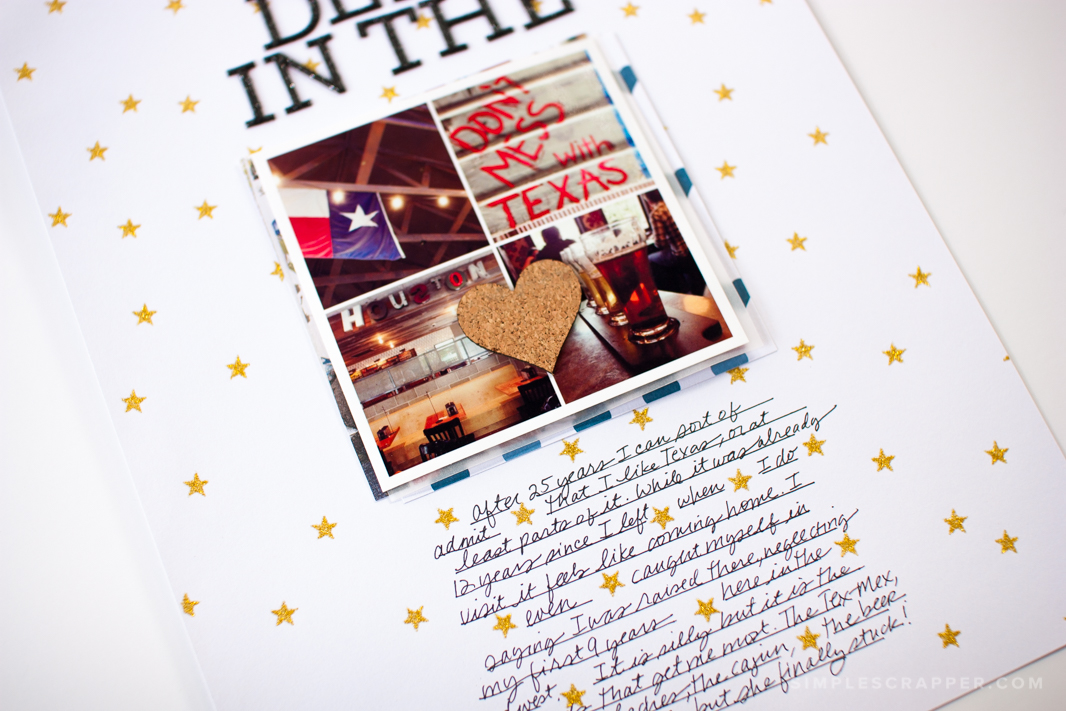 IN THE
DON'T
MESS
with
TEXAS
HOUSTON
after 25 years I can sort of
admit that I like Texas, or at
least parts of it. While it was already
12 years since I left when I do
visit it feels like coming home. I
even caught myself in
saying I was raised there, neglecting
my first 9 years here in the
west. It is silly but it is the
that get me most. The Tex-Mex,
the cajun, the beer.
but she finally stuck!
SIMPLESCRAPPER.COM